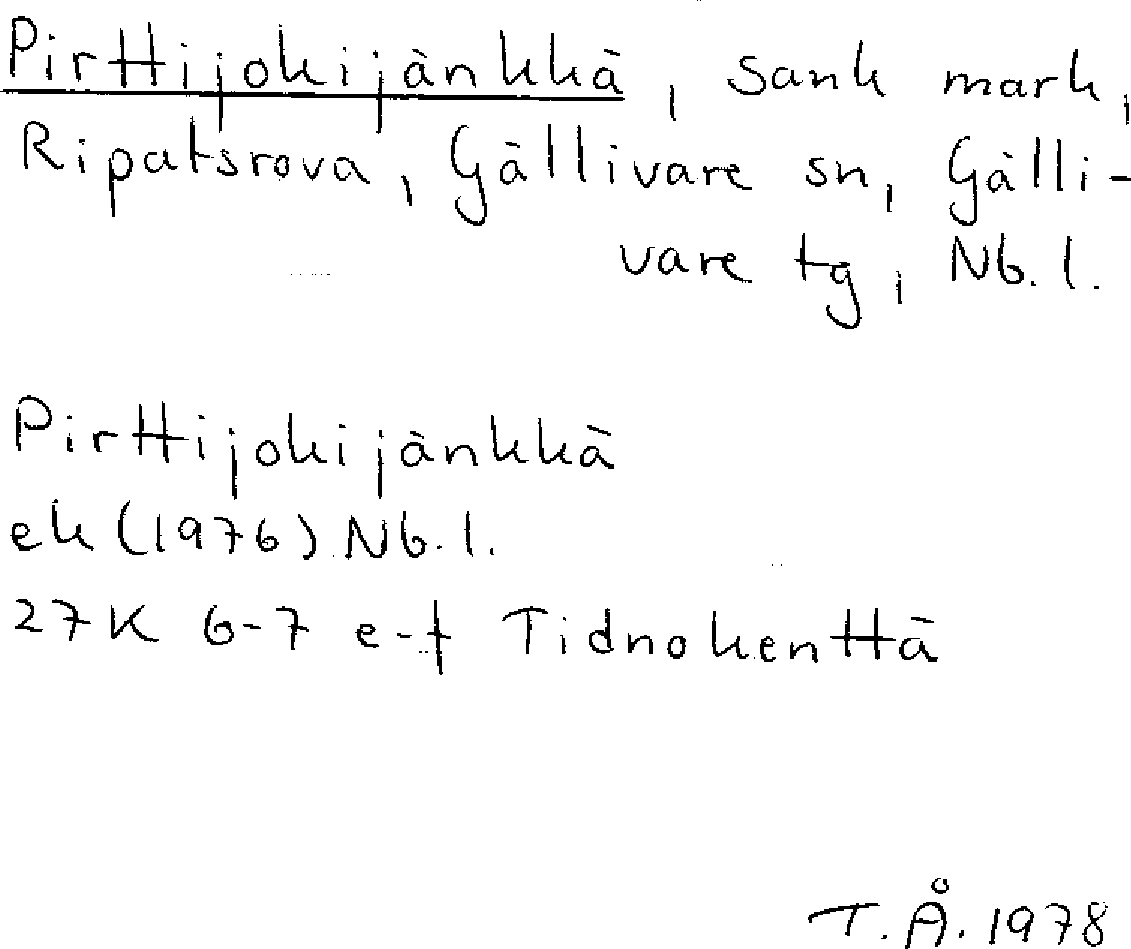 Pirttijokijänkkä, sank mark,
Ripatsrova, Gällivare sn, Gälli-
vare tg, Nb. l.
Pirttijokijänkkä
ek (1976) Nb. l.
27K 6-7 e-f Tidnokenttä
T. Å. 1978